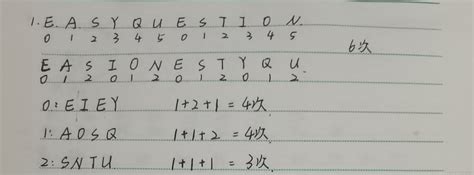 1. E A S Y Q U E S T I O N
0 1 2 3 4 5 0 1 2 3 4 5
6次
E A S I O N E S T Y Q U
0 1 2 0 1 2 0 1 2 0 1 2
0: E I E Y 1+2+1 = 4次
1: A O S Q 1+1+2 = 4次
2: S N T U 1+1+1 = 3次